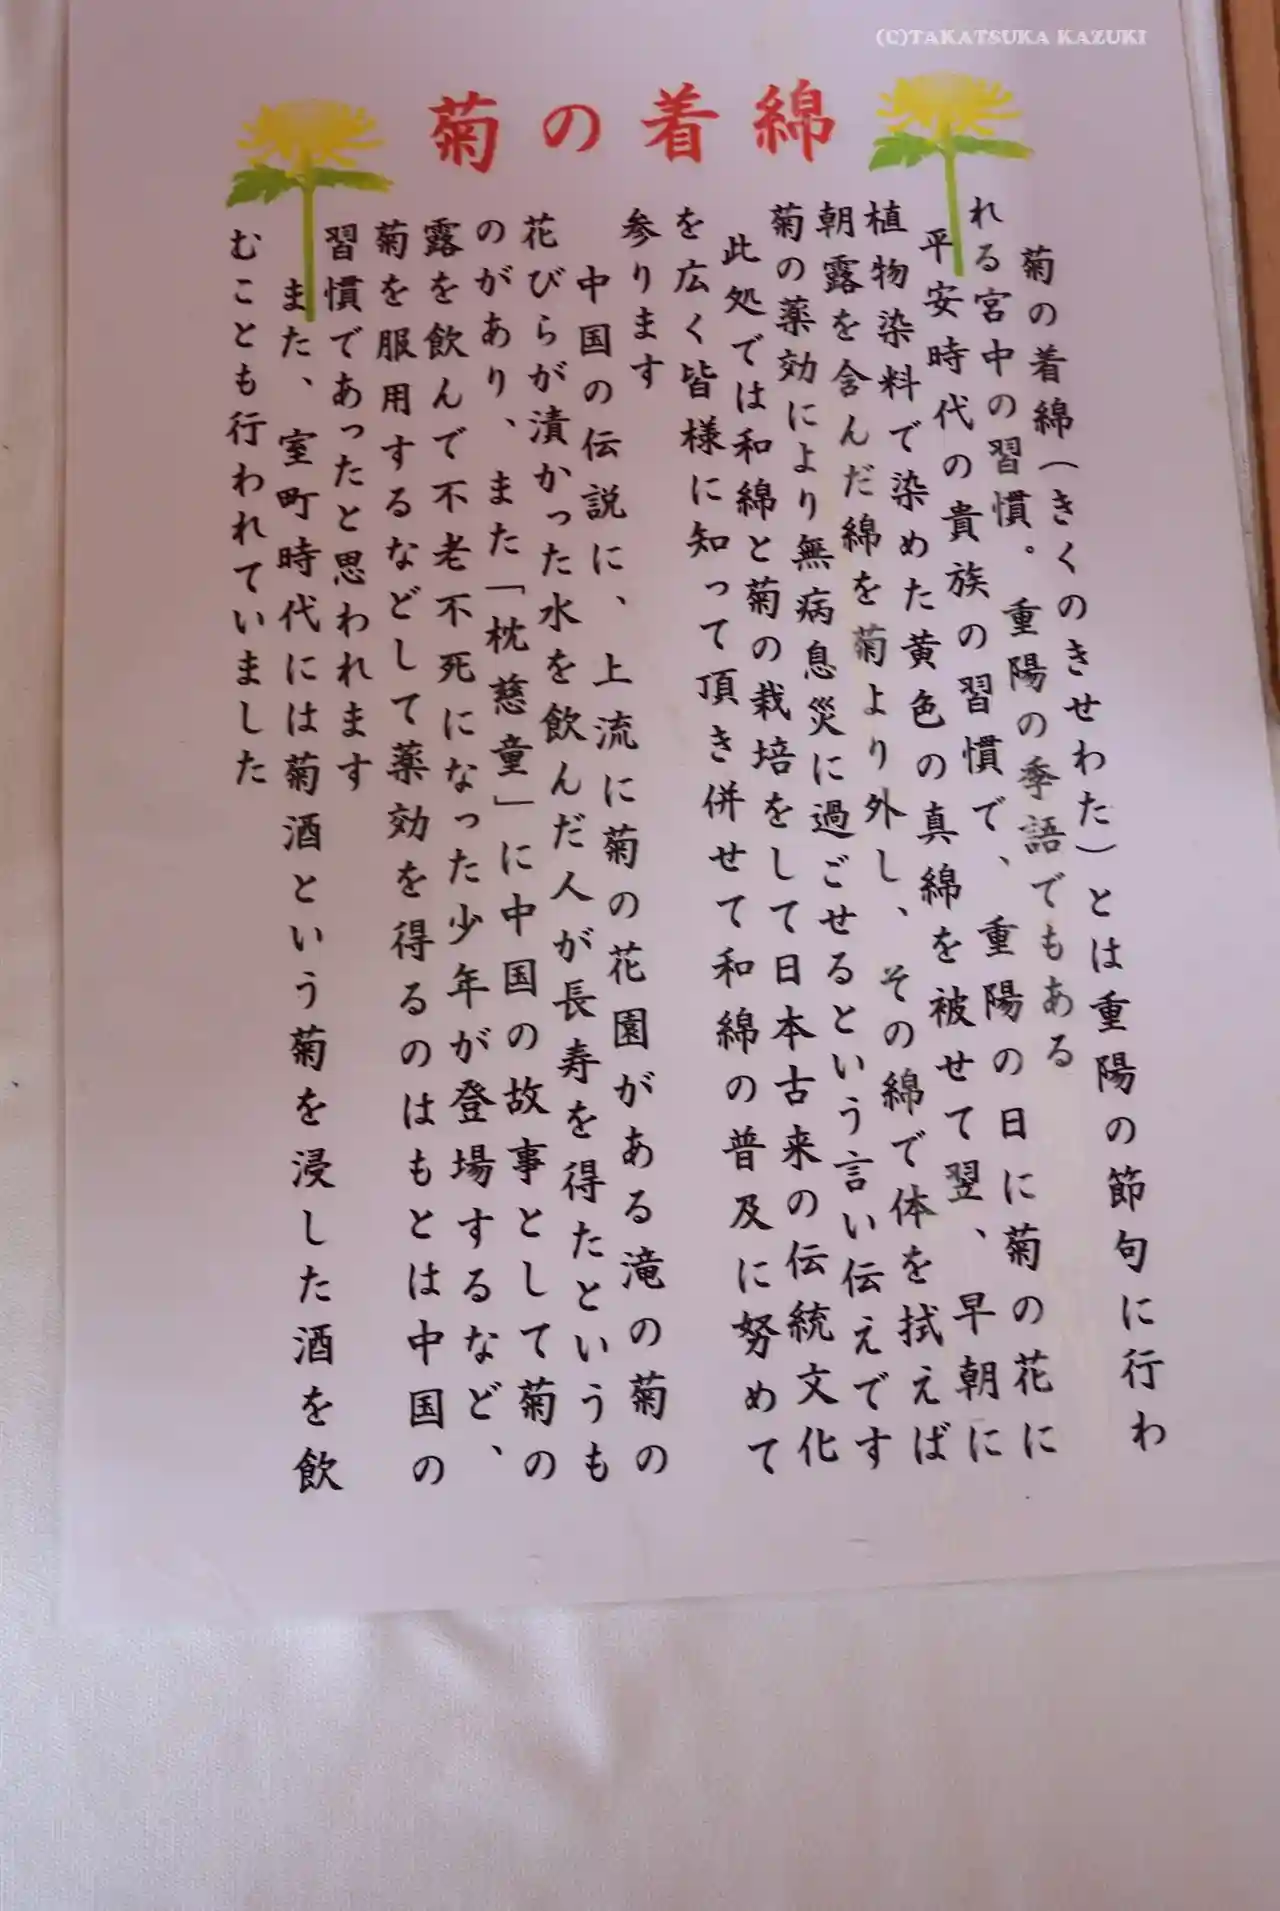 (C)TAKATSUKA KAZUKI
菊の着綿
菊の着綿(きくのきせわた)とは重陽の節句に行わ
れる宮中の習慣。重陽の季語でもある
平安時代の貴族の習慣で、重陽の日に菊の花に
植物染料で染めた黄色の真綿を被せて翌、早朝に
朝露を含んだ綿を菊より外し、その綿で体を拭えば
菊の薬効により無病息災に過ごせるという言い伝えです
此処では和綿と菊の栽培をして日本古来の伝統文化
を広く皆様に知って頂き併せて和綿の普及に努めて
参ります
中国の伝説に、上流に菊の花園がある滝の菊の
花びらが漬かった水を飲んだ人が長寿を得たというも
のがあり、また「枕慈童」に中国の故事として菊の
露を飲んで不老不死になった少年が登場するなど、
菊を服用するなどして薬効を得るのはもとは中国の
習慣であったと思われます
また、室町時代には菊酒という菊を浸した酒を飲
むことも行われていました